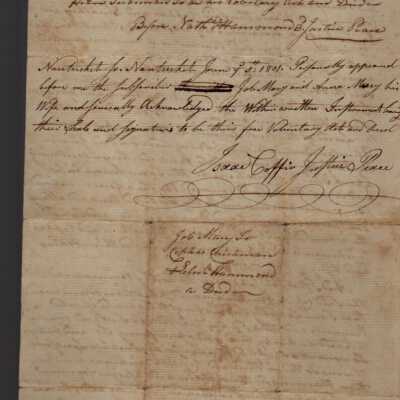 to be his Voluntary Act and Deed
Before Nathl Hammond Justice Peace
Nantucket Ss. Nantucket June 1801. Personally appeared
before me the Subscriber Job Macy and Anna Macy his
Wife and Severally Acknowledged the Within written Instrument having
their Seals and Signatures to be their free Voluntary Act and Deed
Isaac Coffin Justice Peace
Job Macy To
Hammond
a Deed